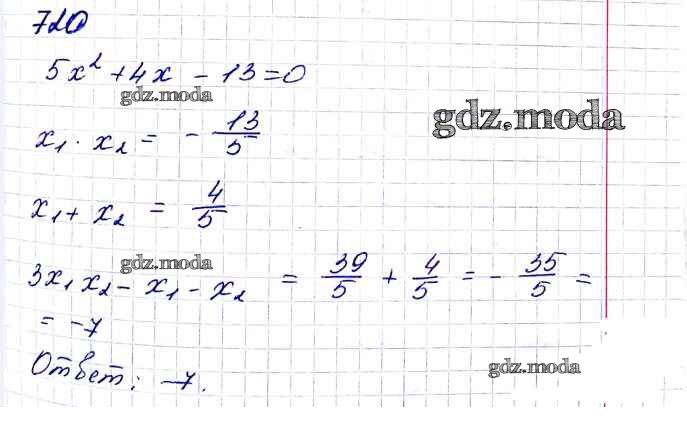 720
5x² + 4x - 13 = 0
gdz.moda
gdz.moda
x₁ · x₂ = - 13/5
x₁ + x₂ = 4/5
gdz.moda
3x₁x₂ - x₁ - x₂ = 39/5 + 4/5 = - 35/5 =
= -7
Ответ: -7.
gdz.moda